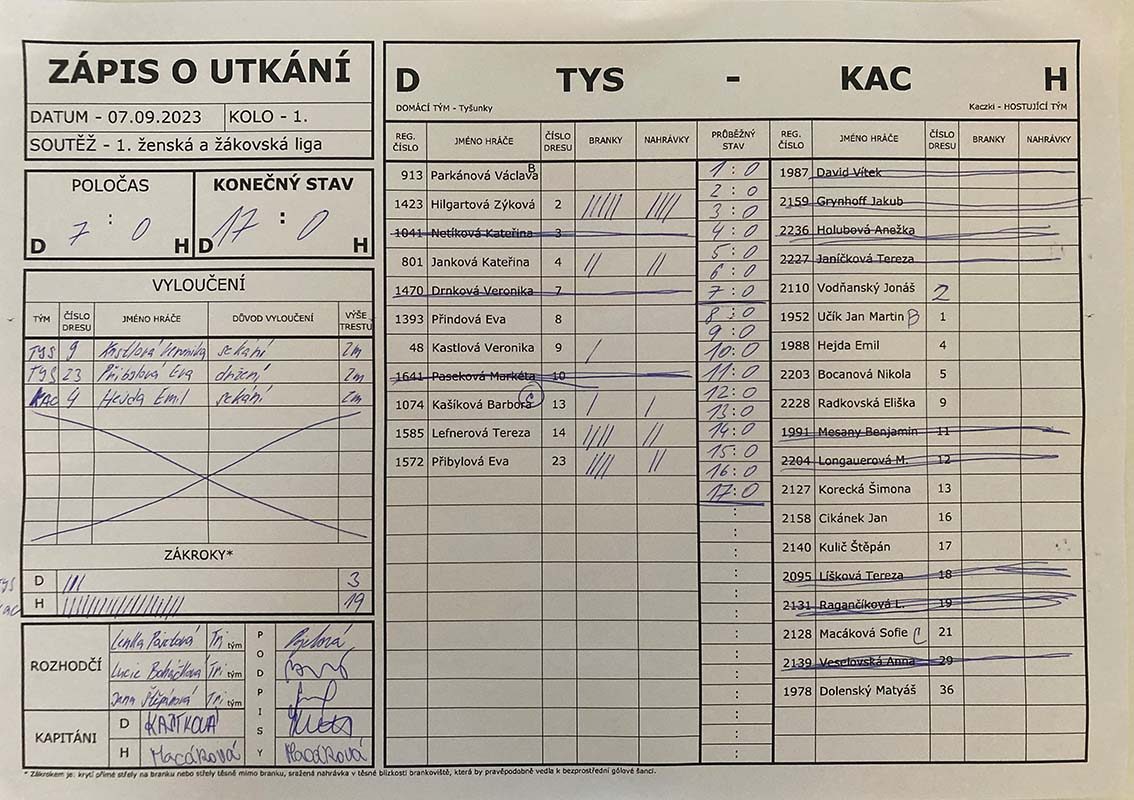 ZÁPIS O UTKÁNÍ
DATUM - 07.09.2023 KOLO - 1.
SOUTĚŽ - 1. ženská a žákovská liga
POLOČAS KONEČNÝ STAV
7 : 0 17 : 0
D H D H
VYLOUČENÍ
TÝM ČÍSLO DRESU JMÉNO HRÁČE DŮVOD VYLOUČENÍ VÝŠE TRESTU
TYS 9 Kastlová Veronika sekání 2m
TYS 23 Přibylová Eva držení 2m
KAC 4 Hejda Emil sekání 2m
ZÁKROKY*
TYS D /// 3
KAC H 19
ROZHODČÍ
Lenka Tri tým
Lucie Tri tým
Jana Štěpánová Tri tým
PODPISY
KAPITÁNI
D
H Macáková Macáková
D TYS - KAC H
DOMÁCÍ TÝM - Tyšunky Kaczki - HOSTUJÍCÍ TÝM
REG. ČÍSLO JMÉNO HRÁČE ČÍSLO DRESU BRANKY NAHRÁVKY PRŮBĚŽNÝ STAV REG. ČÍSLO JMÉNO HRÁČE ČÍSLO DRESU BRANKY NAHRÁVKY
913 Parkánová Václava B
1423 Hilgartová Zýková 2 ///// ////
1041 Netíková Kateřina 3
801 Janková Kateřina 4 // //
1470 Drnková Veronika 7
1393 Přindova Eva 8
48 Kastlová Veronika 9 /
1641 Paseková Markéta 10
1074 Kašíková Barbora C 13 / /
1585 Lefnerová Tereza 14 //// //
1572 Přibylová Eva 23 //// //
1:0
2:0
3:0
4:0
5:0
6:0
7:0
8:0
9:0
10:0
11:0
12:0
13:0
14:0
15:0
16:0
17:0
1987 David Vítek
2159 Grynhoff Jakub
2236 Holubová Anežka
2227 Janíčková Tereza
2110 Vodňanský Jonáš 2
1952 Učík Jan Martin B 1
1988 Hejda Emil 4
2203 Bocanová Nikola 5
2228 Radkovská Eliška 9
1991 Mesany Benjamin 11
2204 Longauerová M. 12
2127 Korecká Šimona 13
2158 Cikánek Jan 16
2140 Kulič Štěpán 17
2095 Líšková Tereza 18
2131 Ragančíková L. 19
2128 Macáková Sofie C 21
2139 Veselovská Anna 29
1978 Dolenský Matyáš 36
* Zákrokem je: krytí přímé střely na branku nebo střely těsně mimo branku, sražená nahrávka v těsné blízkosti brankoviště, která by pravěpodobně vedla k bezprostřední gólové šanci.